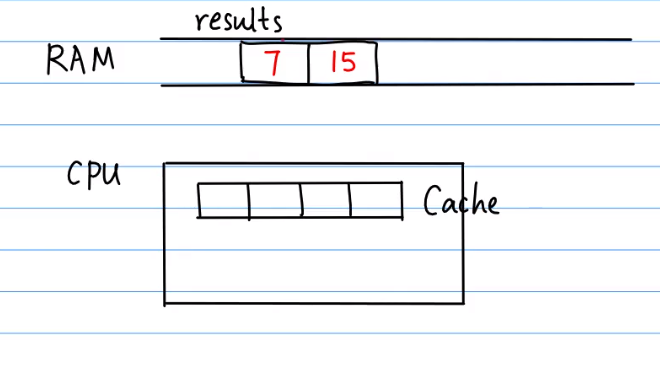 results
RAM 7 15
CPU
Cache